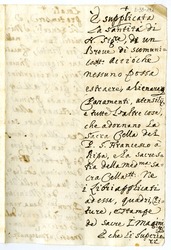 È supplicata
la santità di
N. Sig.re de un
Breve di scomunica
cont.
nessuno possa
estraere, alienare
Paramenti, utensili,
e tutte l'altre cose,
che adornano la
Sacra Cella del
P. S. Francesco a
Ripa, e la Sacres
tia della med.ma sa
cra Cella. Ne
i libri applicati
ad essa, quadri, Pi
ture, e stampe
de' sacre Imagini
E che li superio